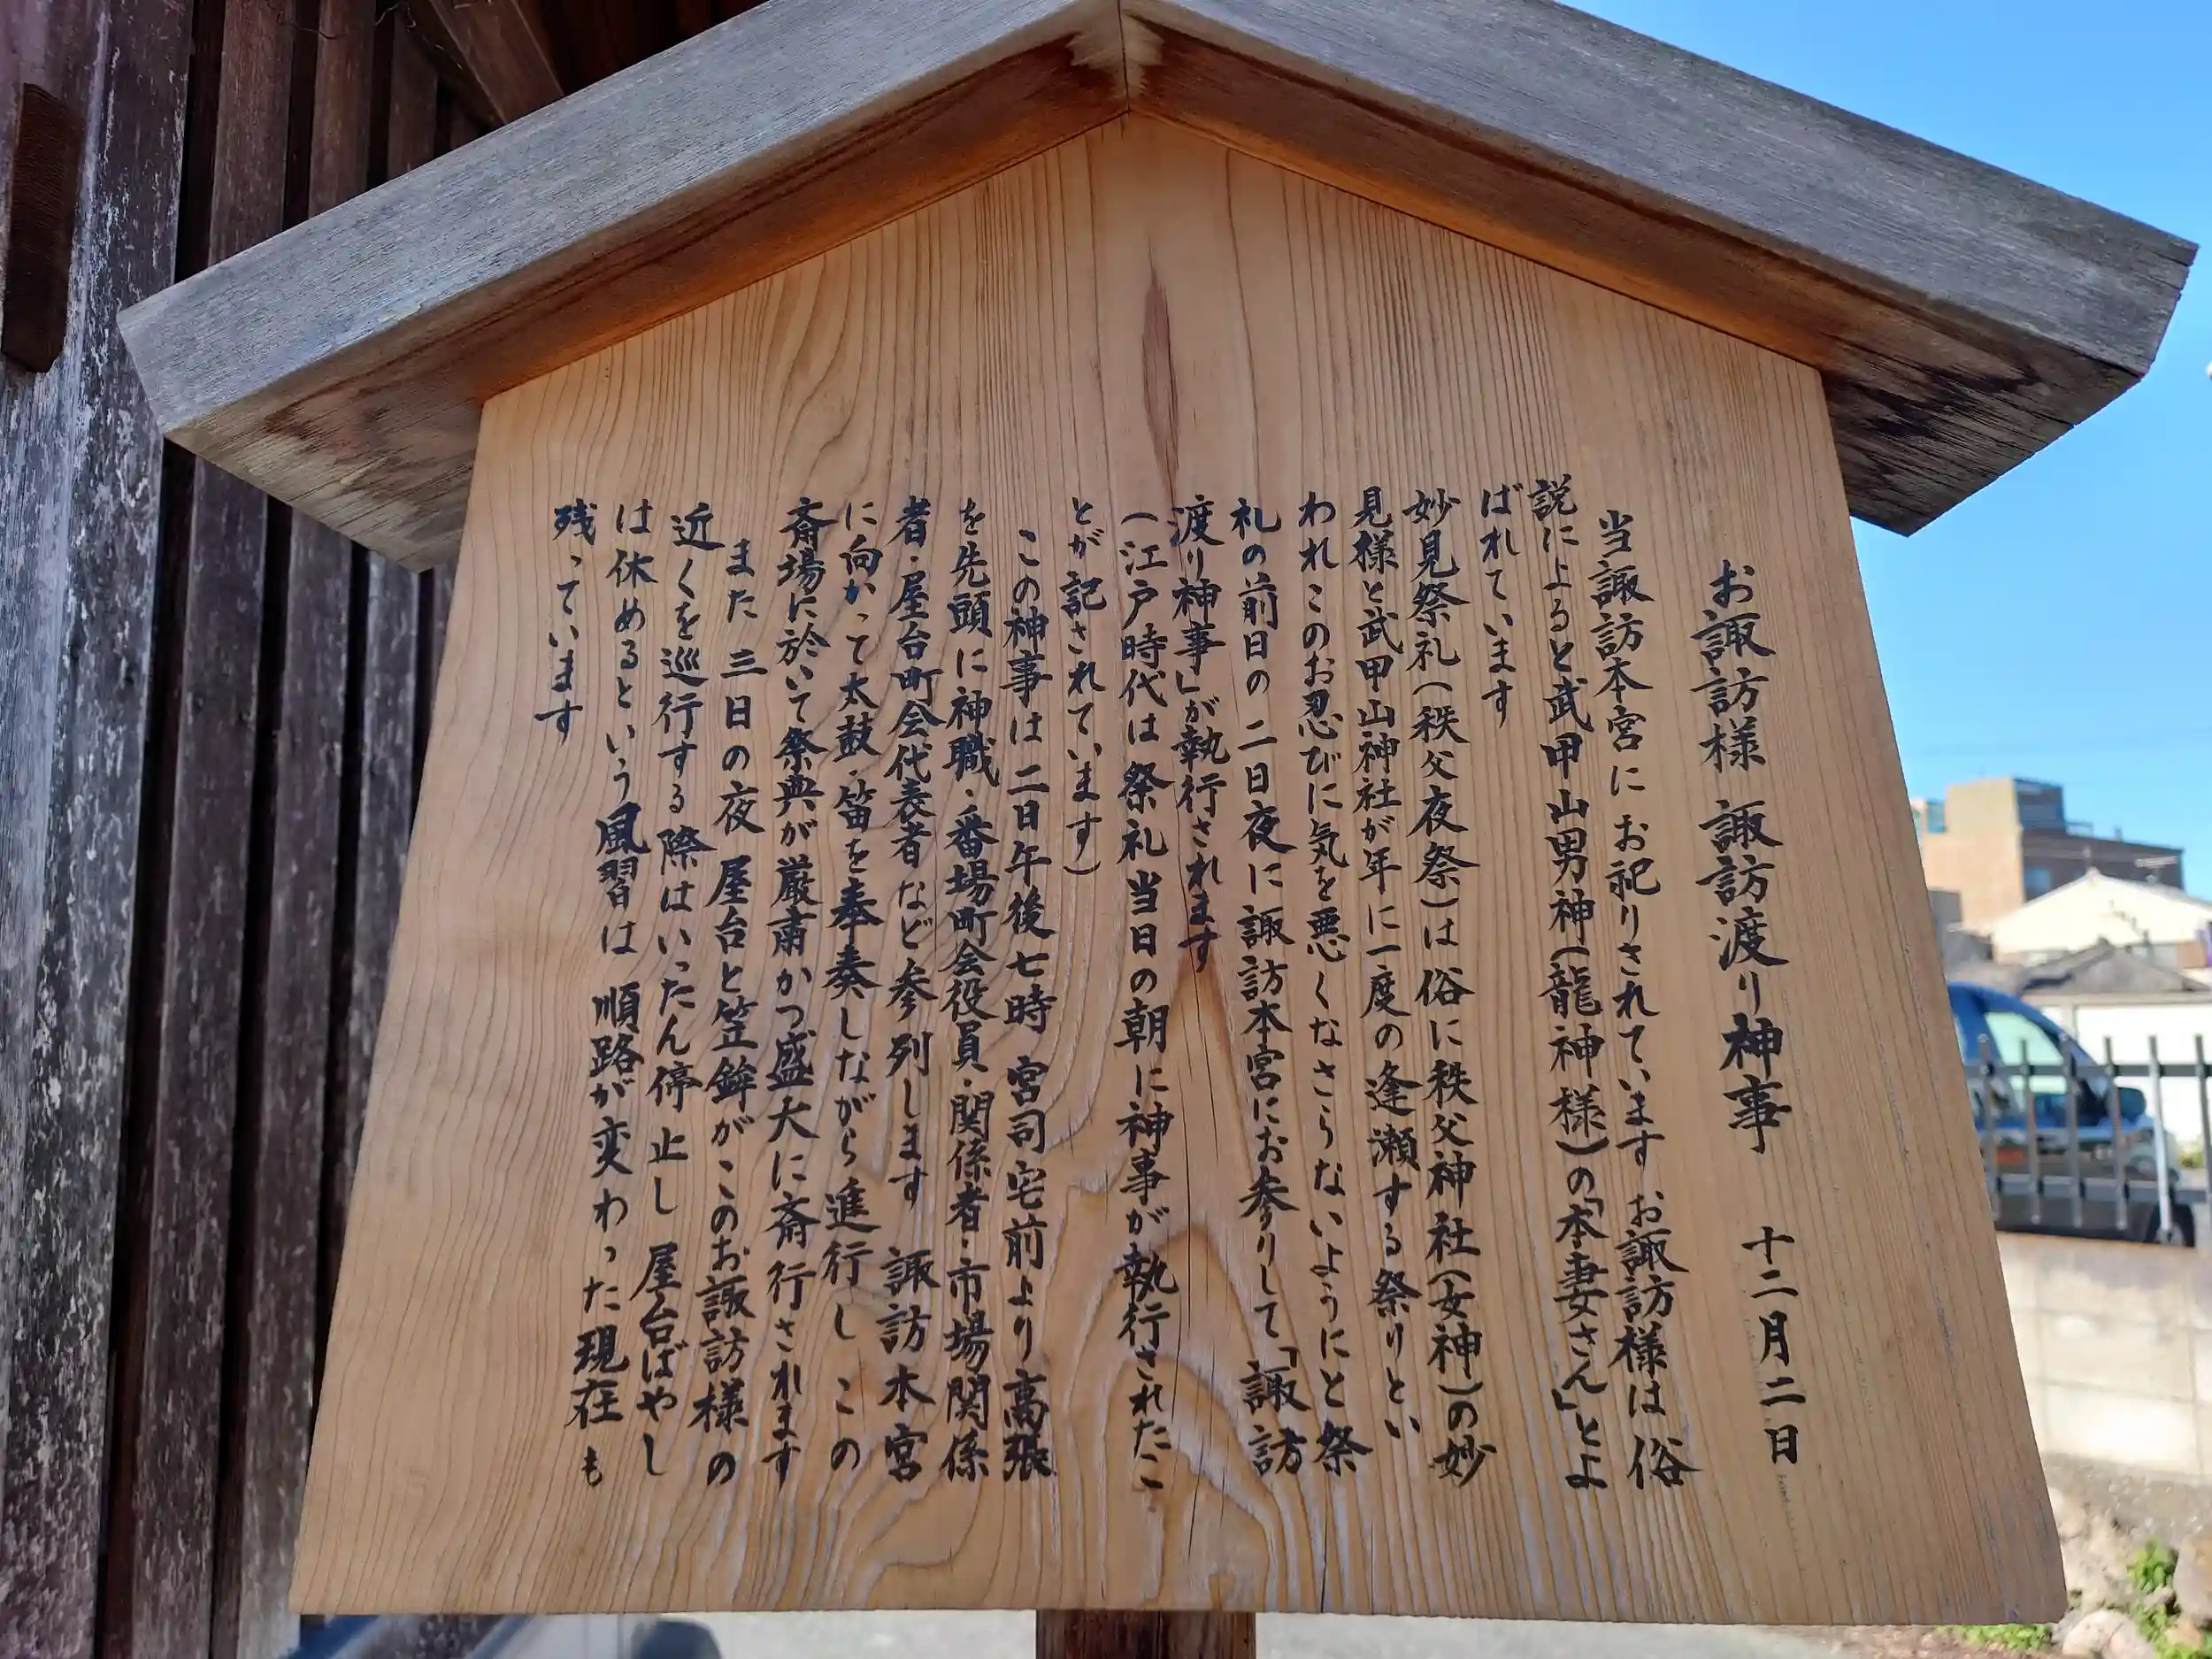 お諏訪様 諏訪渡り神事 十二月二日
当諏訪本宮にお祀りされています お諏訪様は 俗
説によると武甲山男神(龍神様)の「本妻さん」とよ
ばれています
妙見祭礼(秩父夜祭)は俗に秩父神社(女神)の妙
見様と武甲山神社が年に一度の逢瀬する祭りとい
われこのお忍びに気を悪くなさらないようにと祭
礼の前日の二日夜に諏訪本宮にお参りして「諏訪
渡り神事」が執行されます
(江戸時代は祭礼当日の朝に神事が執行されたこ
とが記されています)
この神事は二日午後七時 宮司宅前より高張
を先頭に神職・番場町会役員・関係者・市場関係
者・屋台町会代表者など参列します 諏訪本宮
に向かって太鼓・笛を奉奏しながら進行し この
斎場に於いて祭典が厳粛かつ盛大に斎行されます
また 三日の夜 屋台と笠鉾がこのお諏訪様の
近くを巡行する際はいったん停止し 屋台ばやし
は休めるという風習は 順路が変わった現在も
残っています